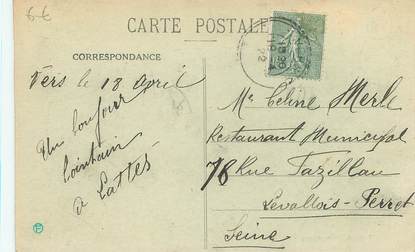 6€
CARTE POSTALE
CORRESPONDANCE
Vers le 18 Avril
Un bonjour
lointain
à Lattes
Me Celine Merle
Restaurant Municipal
78 Rue Fazillau
Levallois-Perret
Seine